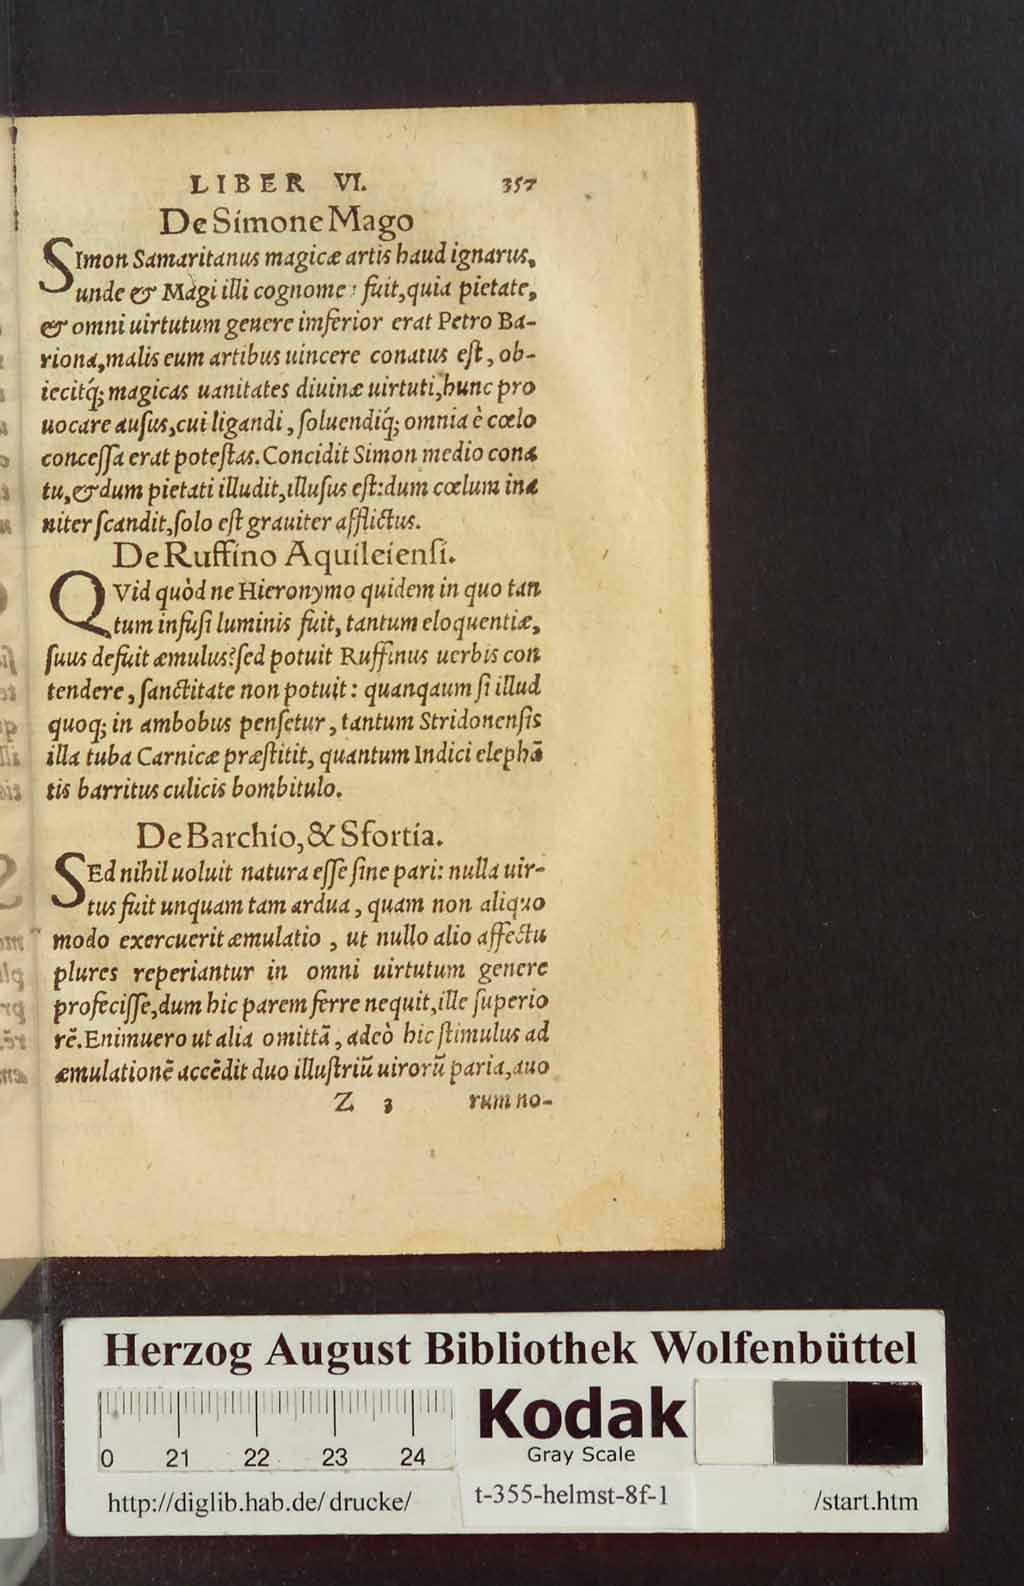 LIBER VI. 357
De Simone Mago
SImon Samaritanus magicæ artis haud ignarus,
unde & Magi illi cognome fuit, quia pietate,
& omni uirtutum genere imferior erat Petro Ba-
riona, malis eum artibus uincere conatus eſt, ob-
iecitq́; magicas uanitates diuinæ uirtuti, hunc pro
uocare auſus, cui ligandi, ſoluendiq́; omnia è cœlo
conceſſa erat poteſtas. Concidit Simon medio cona
tu, & dum pietati illudit, illuſus eſt: dum cœlum ina
niter ſcandit, ſolo eſt grauiter afflictus.
De Ruffino Aquileienſi.
QVid quòd ne Hieronymo quidem in quo tan
tum infuſi luminis fuit, tantum eloquentiæ,
ſuus defuit æmulus? ſed potuit Ruffinus uerbis con
tendere, ſanctitate non potuit: quanqaum ſi illud
quoq; in ambobus penſetur, tantum Stridonenſis
illa tuba Carnicæ præſtitit, quantum Indici elephā
tis barritus culicis bombitulo.
De Barchio, & Sfortia.
SEd nihil uoluit natura eſſe ſine pari: nulla uir-
tus fuit unquam tam ardua, quam non aliquo
modo exercuerit æmulatio, ut nullo alio affectu
plures reperiantur in omni uirtutum genere
profeciſſe, dum hic parem ferre nequit, ille ſuperio
rē. Enimuero ut alia omittā, adeò hic ſtimulus ad
æmulationē accēdit duo illuſtriū uirorū paria, quo
Z 3 rum no-
Herzog August Bibliothek Wolfenbüttel
0 21 22 23 24
Kodak
Gray Scale
http://diglib.hab.de/drucke/ t-355-helmst-8f-1 /start.htm